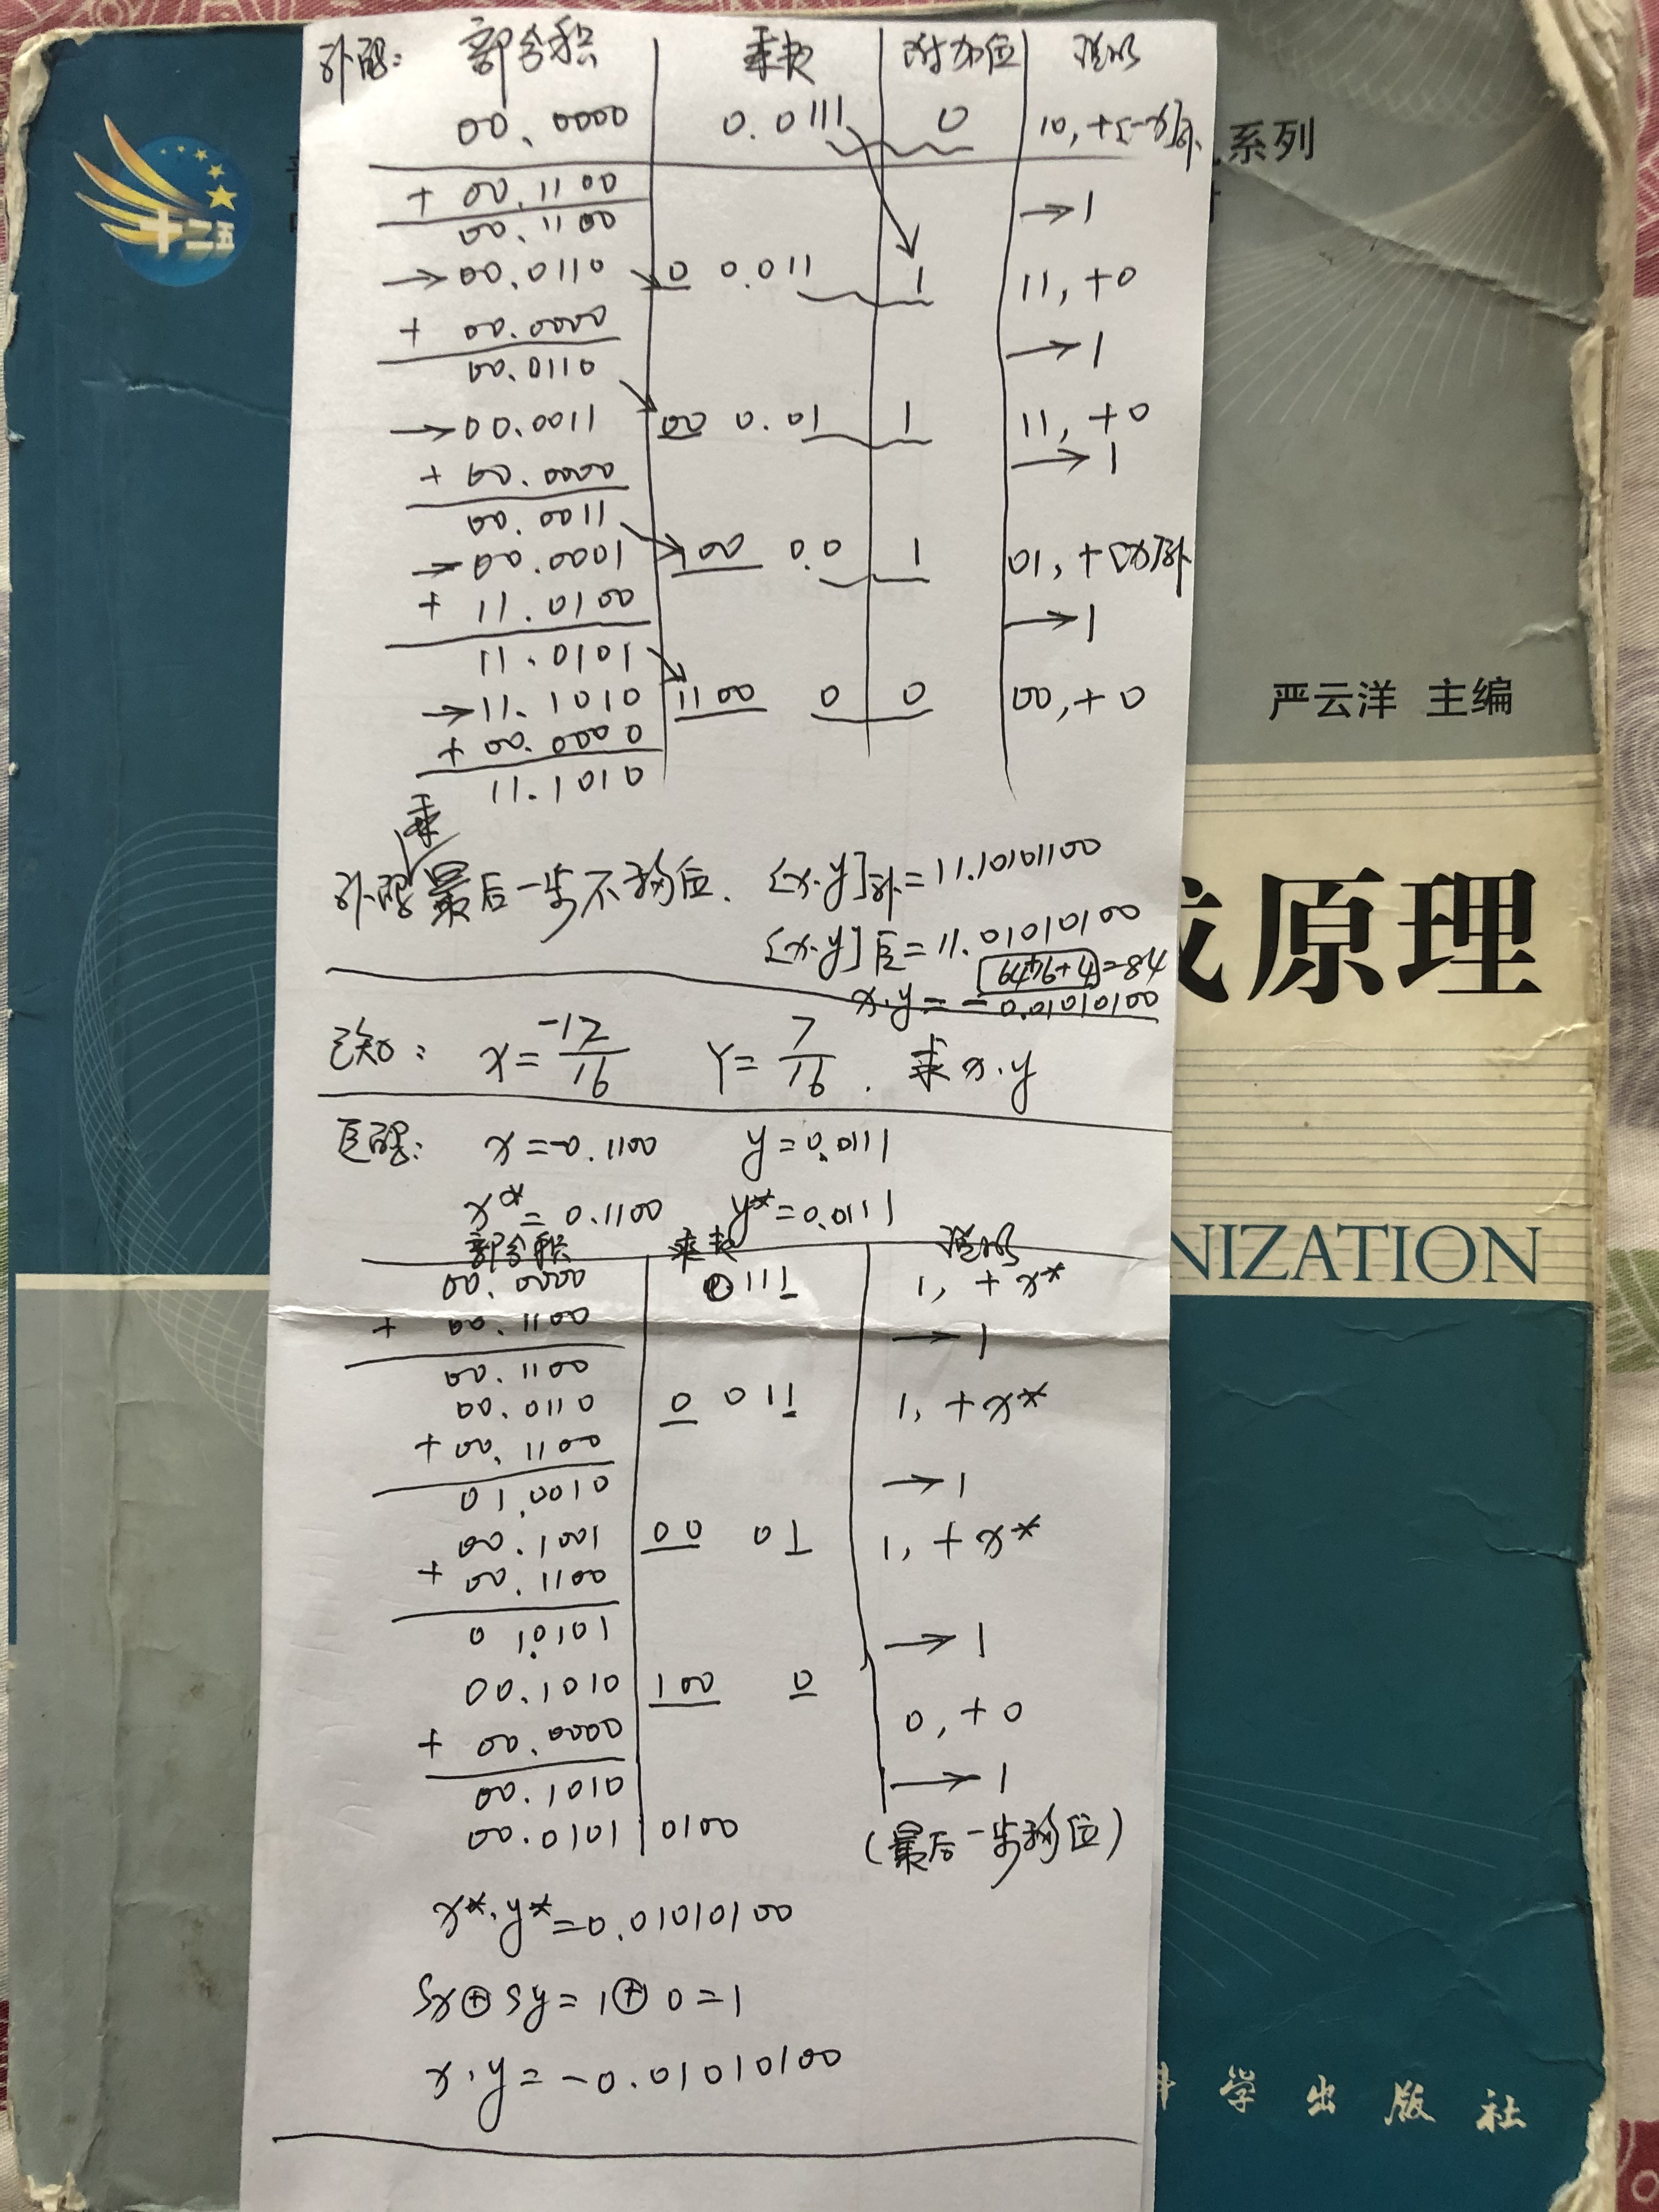 补码: 部分积 乘数 附加位 说明
00.0000 0.0111 0 10,+[-x]补
+ 00.1100 →1
00.1100
→00.0110 0 0.011 1 11,+0
+ 00.0000 →1
00.0110
→00.0011 00 0.01 1 11,+0
+ 00.0000 →1
00.0011
→00.0001 100 0.0 1 01,+[x]补
+ 11.0100 →1
11.0101
→11.1010 1100 0 0 00,+0
+ 00.0000
11.1010
补码乘最后一步不移位. [x.y]补=11.10101100
[x.y]原=11.01010100
64+16+4=84
x.y=-0.01010100
已知: X=-12/16 Y=7/16. 求x.y
原码: x=-0.1100 y=0.0111
x*=0.1100 y*=0.0111
部分积 乘数 说明
00.0000 0111 1,+x*
+ 00.1100 →1
00.1100
00.0110 0 011 1,+x*
+00.1100
01.0010 →1
00.1001 00 01 1,+x*
+ 00.1100
01.0101 →1
00.1010 100 0
0,+0
+ 00.0000
00.1010 →1
00.0101 0100 (最后一步移位)
x*.y*=0.01010100
Sx⊕Sy=1⊕0=1
x.y=-0.01010100
十二五
系列
严云洋 主编
成原理
NIZATION
科学出版社